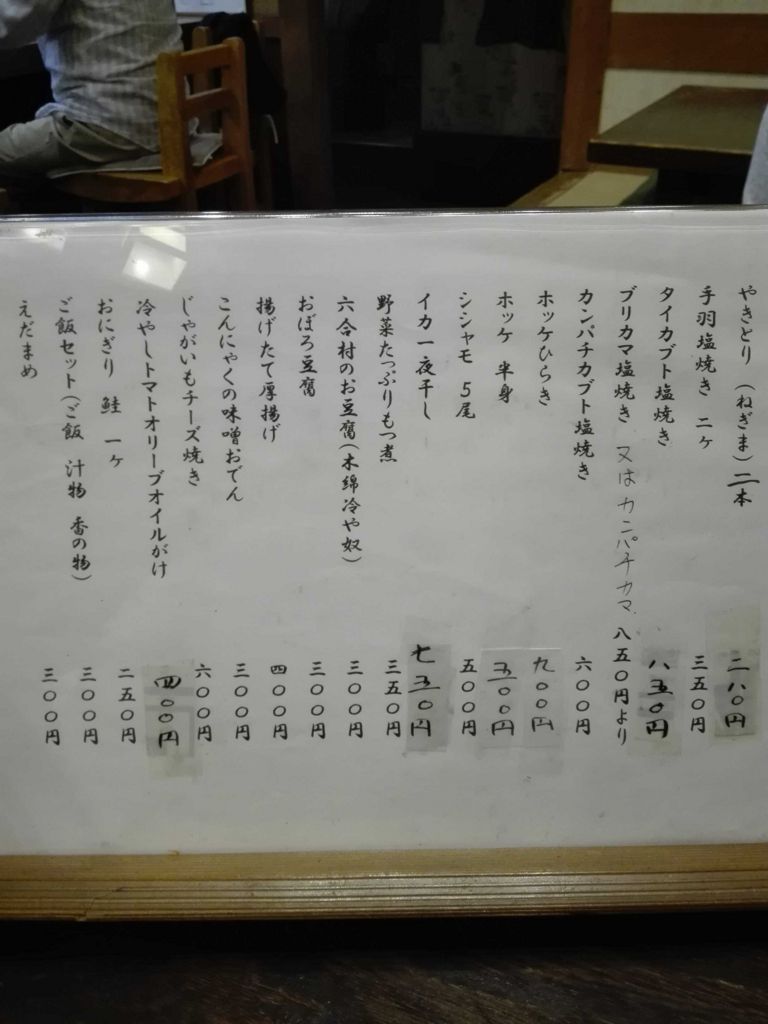 やきとり (ねぎま) 二本 二八〇円
手羽塩焼き 二ケ 三五〇円
タイカブト塩焼き 八五〇円
ブリカマ塩焼き 又は カンパチカマ 八五〇円より
カンパチカブト塩焼き 六〇〇円
ホッケひらき 九〇〇円
ホッケ 半身 五〇〇円
シシャモ 5尾 五〇〇円
イカ一夜干し 七五〇円
野菜たっぷりもつ煮 三五〇円
六合村のお豆腐(木綿冷や奴) 三〇〇円
おぼろ豆腐 三〇〇円
揚げたて厚揚げ 四〇〇円
こんにゃくの味噌おでん 三〇〇円
じゃがいもチーズ焼き 六〇〇円
冷やしトマトオリーブオイルがけ 四〇〇円
おにぎり 鮭 一ケ 二五〇円
ご飯セット(ご飯 汁物 香の物) 三〇〇円
えだまめ 三〇〇円